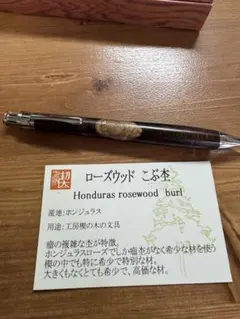 ローズウッド こぶ杢
Honduras rosewood burl
産地:ホンジュラス
用途:工房楔の木の文具
瘤の複雑な杢が特徴。
ホンジュラスローズでしか瘤杢がなく希少な材を使う
楔の中でも特に希少で特別な材。
大きくもなくとても希少で、高価な材。